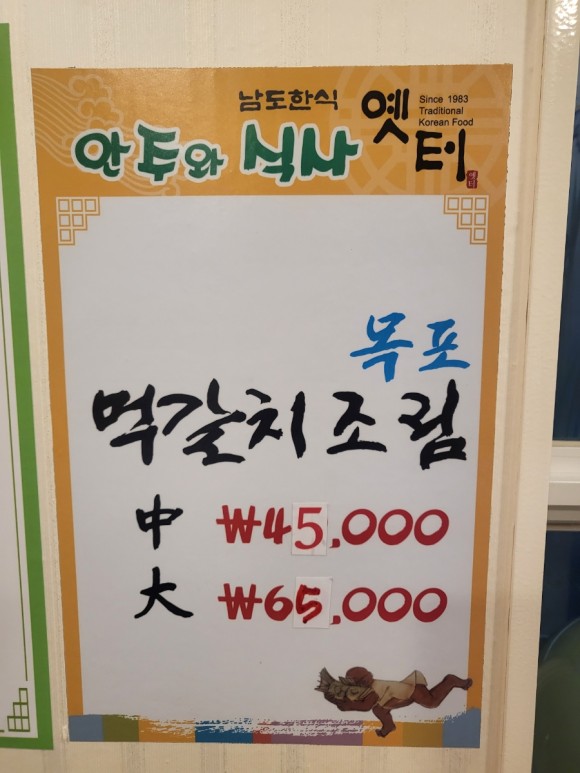 남도한식
안주와 식사
옛터
Since 1983
Traditional
Korean Food
목포
먹갈치조림
中 ₩45,000
大 ₩65,000